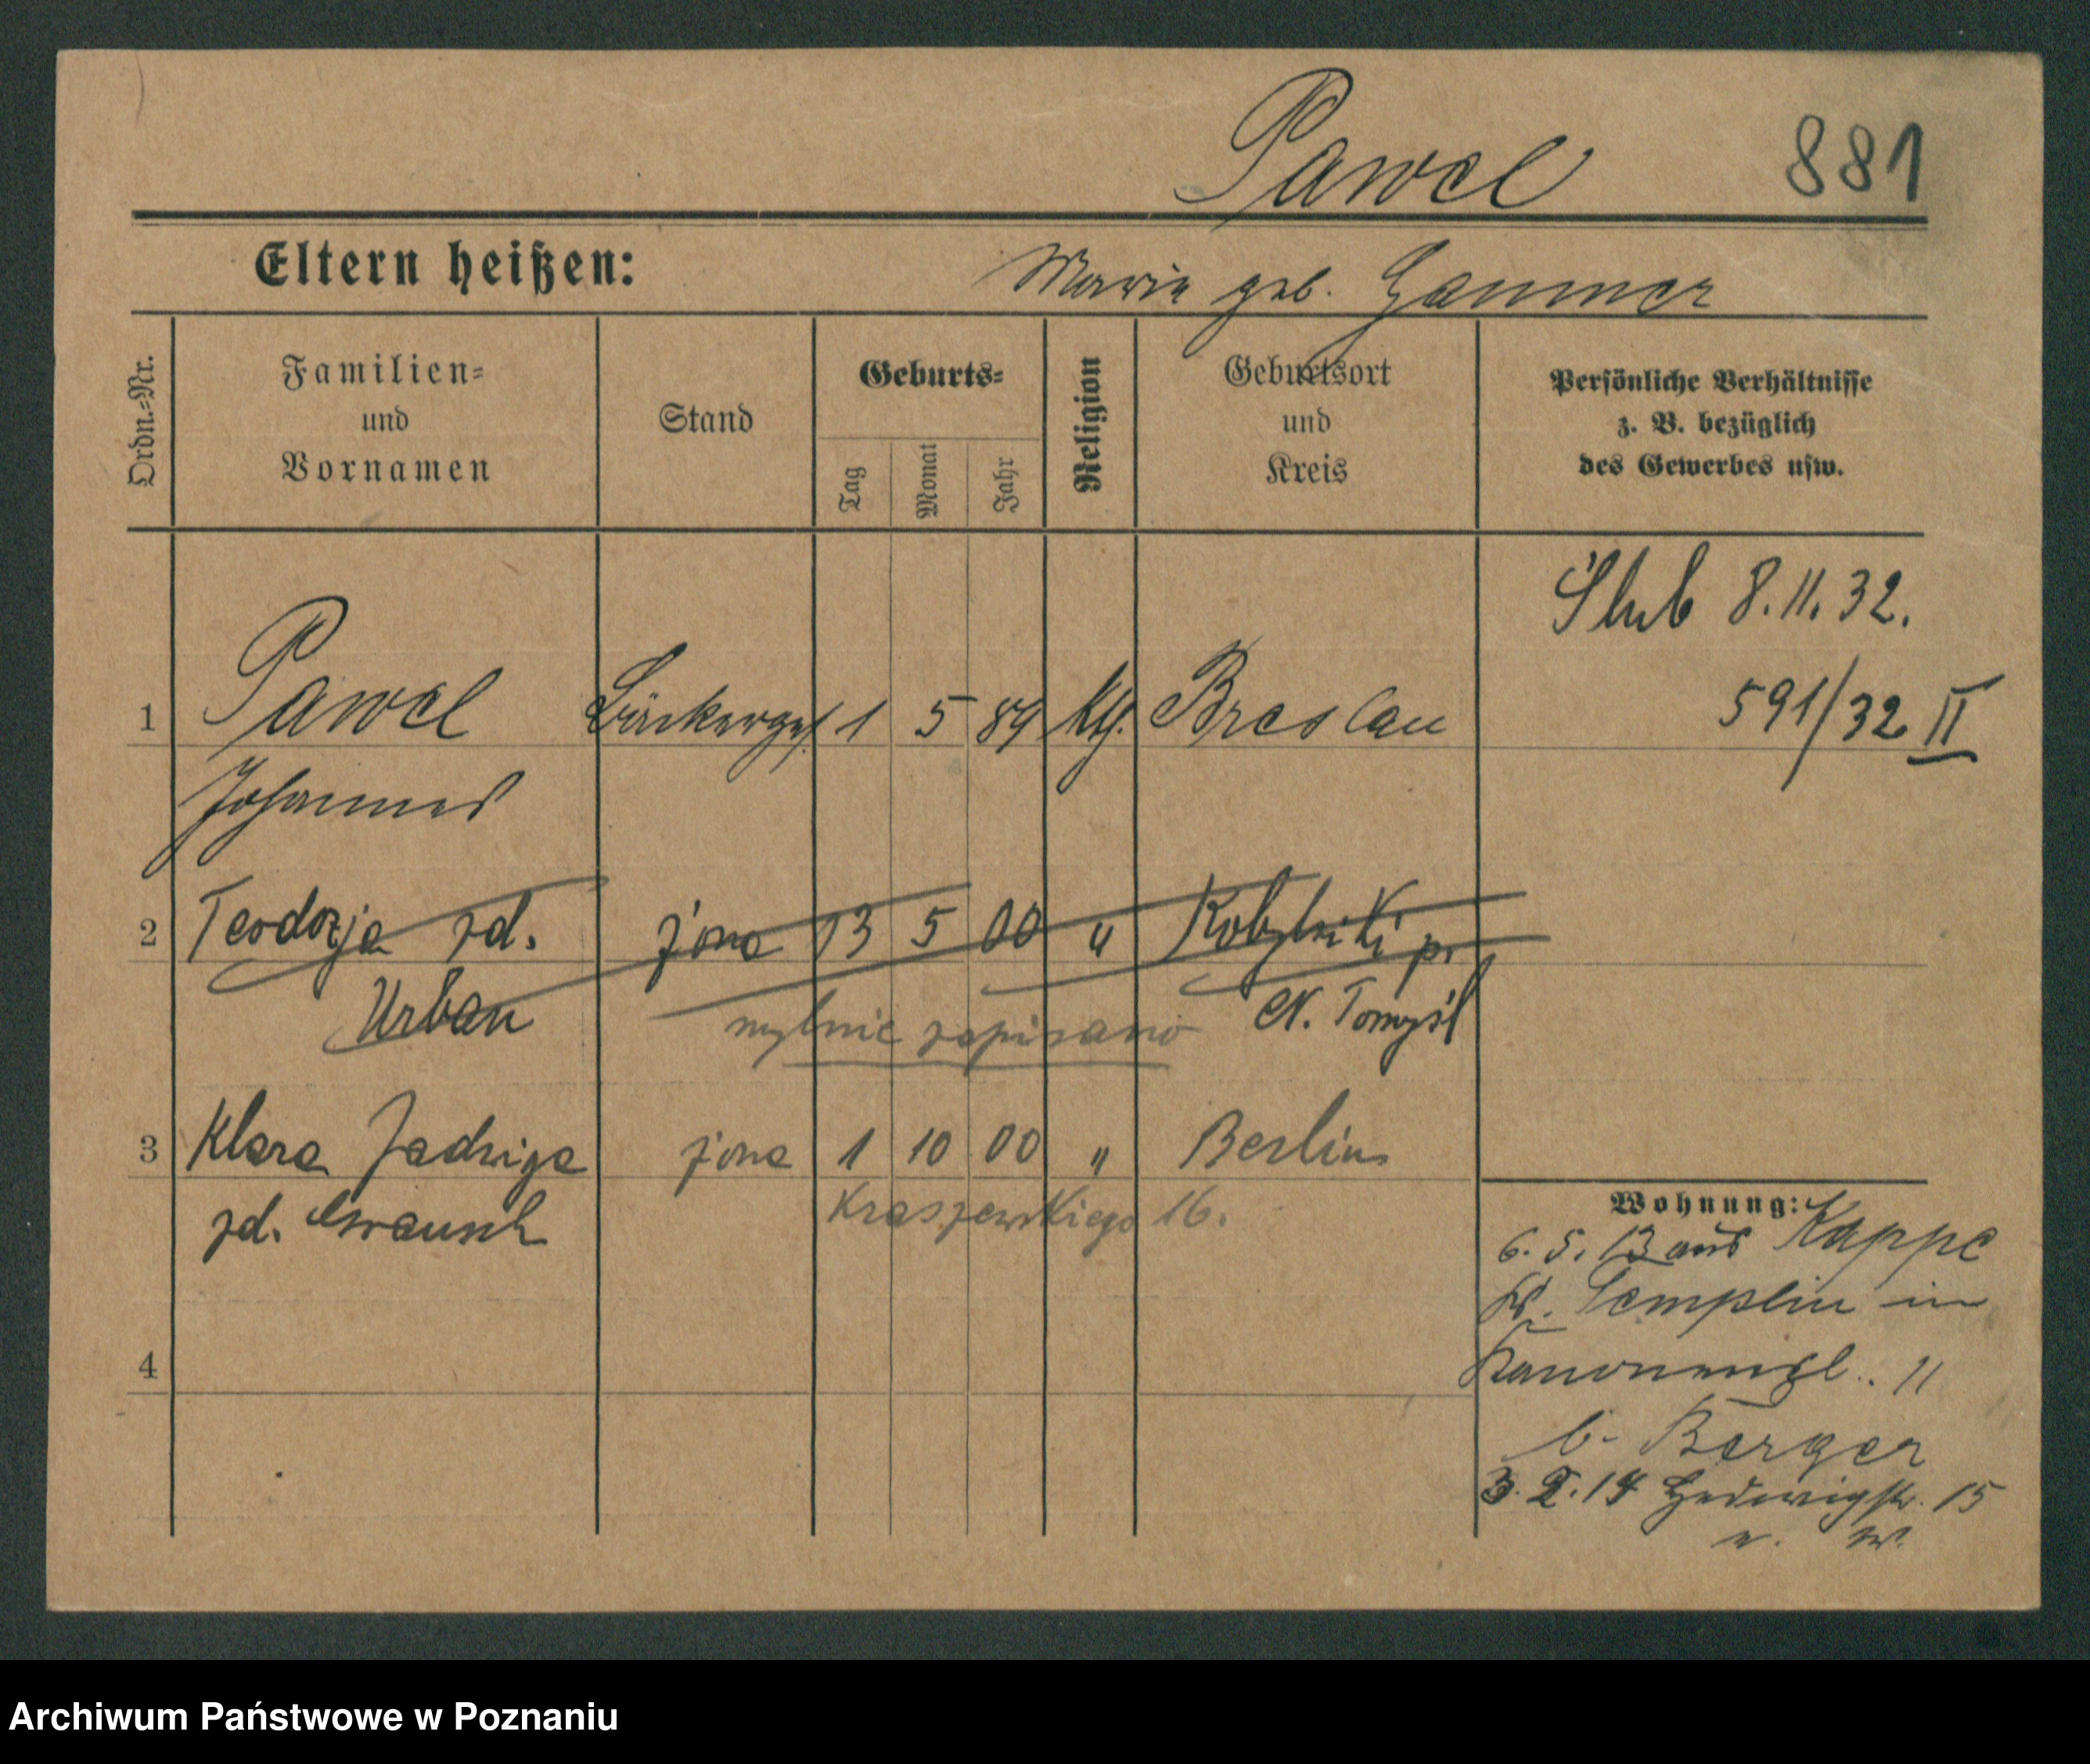 Pawel 881
Eltern heißen: Marie geb. Hammer
Ordn.-Nr.
Familien-
und
Vornamen
Stand
Geburts-
Tag
Monat
Jahr
Religion
Geburtsort
und
Kreis
Persönliche Verhältnisse
z. B. bezüglich
des Gewerbes usw.
Ślub 8.11.32.
1 Pawel Bäckerges. 1 5 89 kth. Breslau 591/32 II
Johannes
2 Teodozja zd. żona 13 5 00 " p.
Urban mylnie zapisano N. Tomyśl
3 Klara Jadwiga żona 1 10 00 " Berlin
zd. Kraszewskiego 16.
Wohnung:
6. 5. 13 aus Kappe
Kr. Templin in
Kanonenpl. 11
b. Berger
3. 2. 14 Hedwigstr. 15
n. W.
4
Archiwum Państwowe w Poznaniu